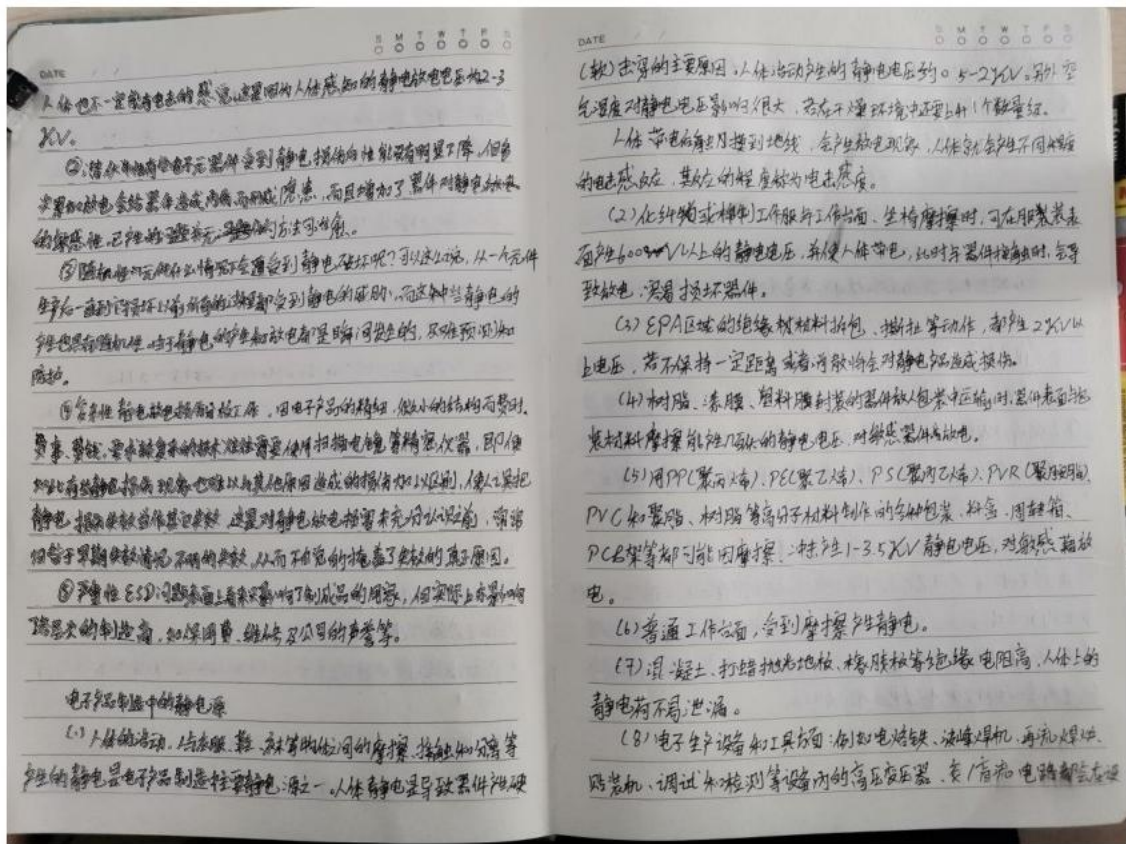 S M T W T F S
DATE / /
人体也不一定能有电击的感觉,这是因为人体感知的静电放电电压为2-3
KV。
②潜伏性 有些电子元器件受到静电损伤后性能没有明显下降,但多
次累加放电会给器件造成内伤而形成隐患,而且增加了器件对静电
的敏感性。已产生的问题并无 方法可治愈。
③随机性 元件什么情况下会遭受到静电破坏呢?可以这么说,从一个元件
生产后一直到它损坏以前所有的过程都受到静电的威胁,而这些静电的
产生也具有随机性。由于静电的产生和放电都是瞬间发生的,极难预测和
防护。
④复杂性 静电放电损伤分析工作,因电子产品的精细,微小的结构而费时、
费事、费钱,要求较复杂的技术往往需要使用扫描电镜等精密仪器,即使
如此有些静电损伤现象也难以与其他原因造成的损伤加以区别,使人误把
静电损伤失效当作其它失效,这是对静电放电损害未充分认识之前,常常
归咎于早期失效或情况不明的失效,从而不自觉的掩盖了失效的真正原因。
⑤严重性 ESD问题表面上看来只影响了制成品的用家,但实际上亦影响
各层次的制造商,如保用费、维修及公司的声誉等。
电子产品制造中的静电源
(1)人体的活动,人与衣服、鞋、袜等物体之间的摩擦、接触和分离等
产生的静电是电子产品制造中主要静电源之一。人体静电是导致器件产生硬
S M T W T F S
DATE / /
(软)击穿的主要原因。人体活动产生的静电电压约0.5-2KV。另外空
气湿度对静电电压影响很大,若在干燥环境中还要上升1个数量级。
人体带电后触及到地线,会产生放电现象,人体就会产生不同程度
的电击感反应,其反应的程度称为电击感度。
(2)化纤物或棉制工作服与工作台面、坐椅摩擦时,可在服装表
面产生6000V以上的静电电压,并使人体带电,此时与器件接触时,会导
致放电,容易损坏器件。
(3)EPA区域的绝缘材料拆包、撕扯等动作,都产生2KV以
上电压,若不保持一定距离或者消散将会对静电产品造成损伤。
(4)树脂、漆膜、塑料膜封装的器件放入包装中运输时,器件表面与包
装材料摩擦能产生几百伏的静电电压,对敏感器件放电。
(5)用PP(聚丙烯)、PE(聚乙烯)、PS(聚丙乙烯)、PVR(聚胺脂)、
PVC和聚脂、树脂等高分子材料制作的各种包装、料盒、周转箱、
PCB架等都可能因摩擦、冲击产生1-3.5KV静电电压,对敏感器放
电。
(6)普通工作台面,受到摩擦产生静电。
(7)混凝土、打蜡抛光地板、橡胶板等绝缘电阻高,人体上的
静电荷不易泄漏。
(8)电子生产设备和工具方面:例如电烙铁、波峰焊机、再流焊炉、
贴装机、调试和检测等设备内的高压变压器、交/直流电路都会在设